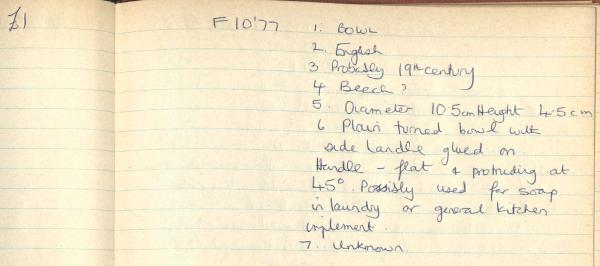 £1 F10'77 1. BOWL
2. English
3 Probably 19th century
4 Beech?
5. Diameter 10.5cm Height 4.5cm
6 Plain turned bowl with
side handle glued on
Handle - flat & protruding at
45°. Possibly used for soap
in laundry or general kitchen
implement.
7. Unknown.